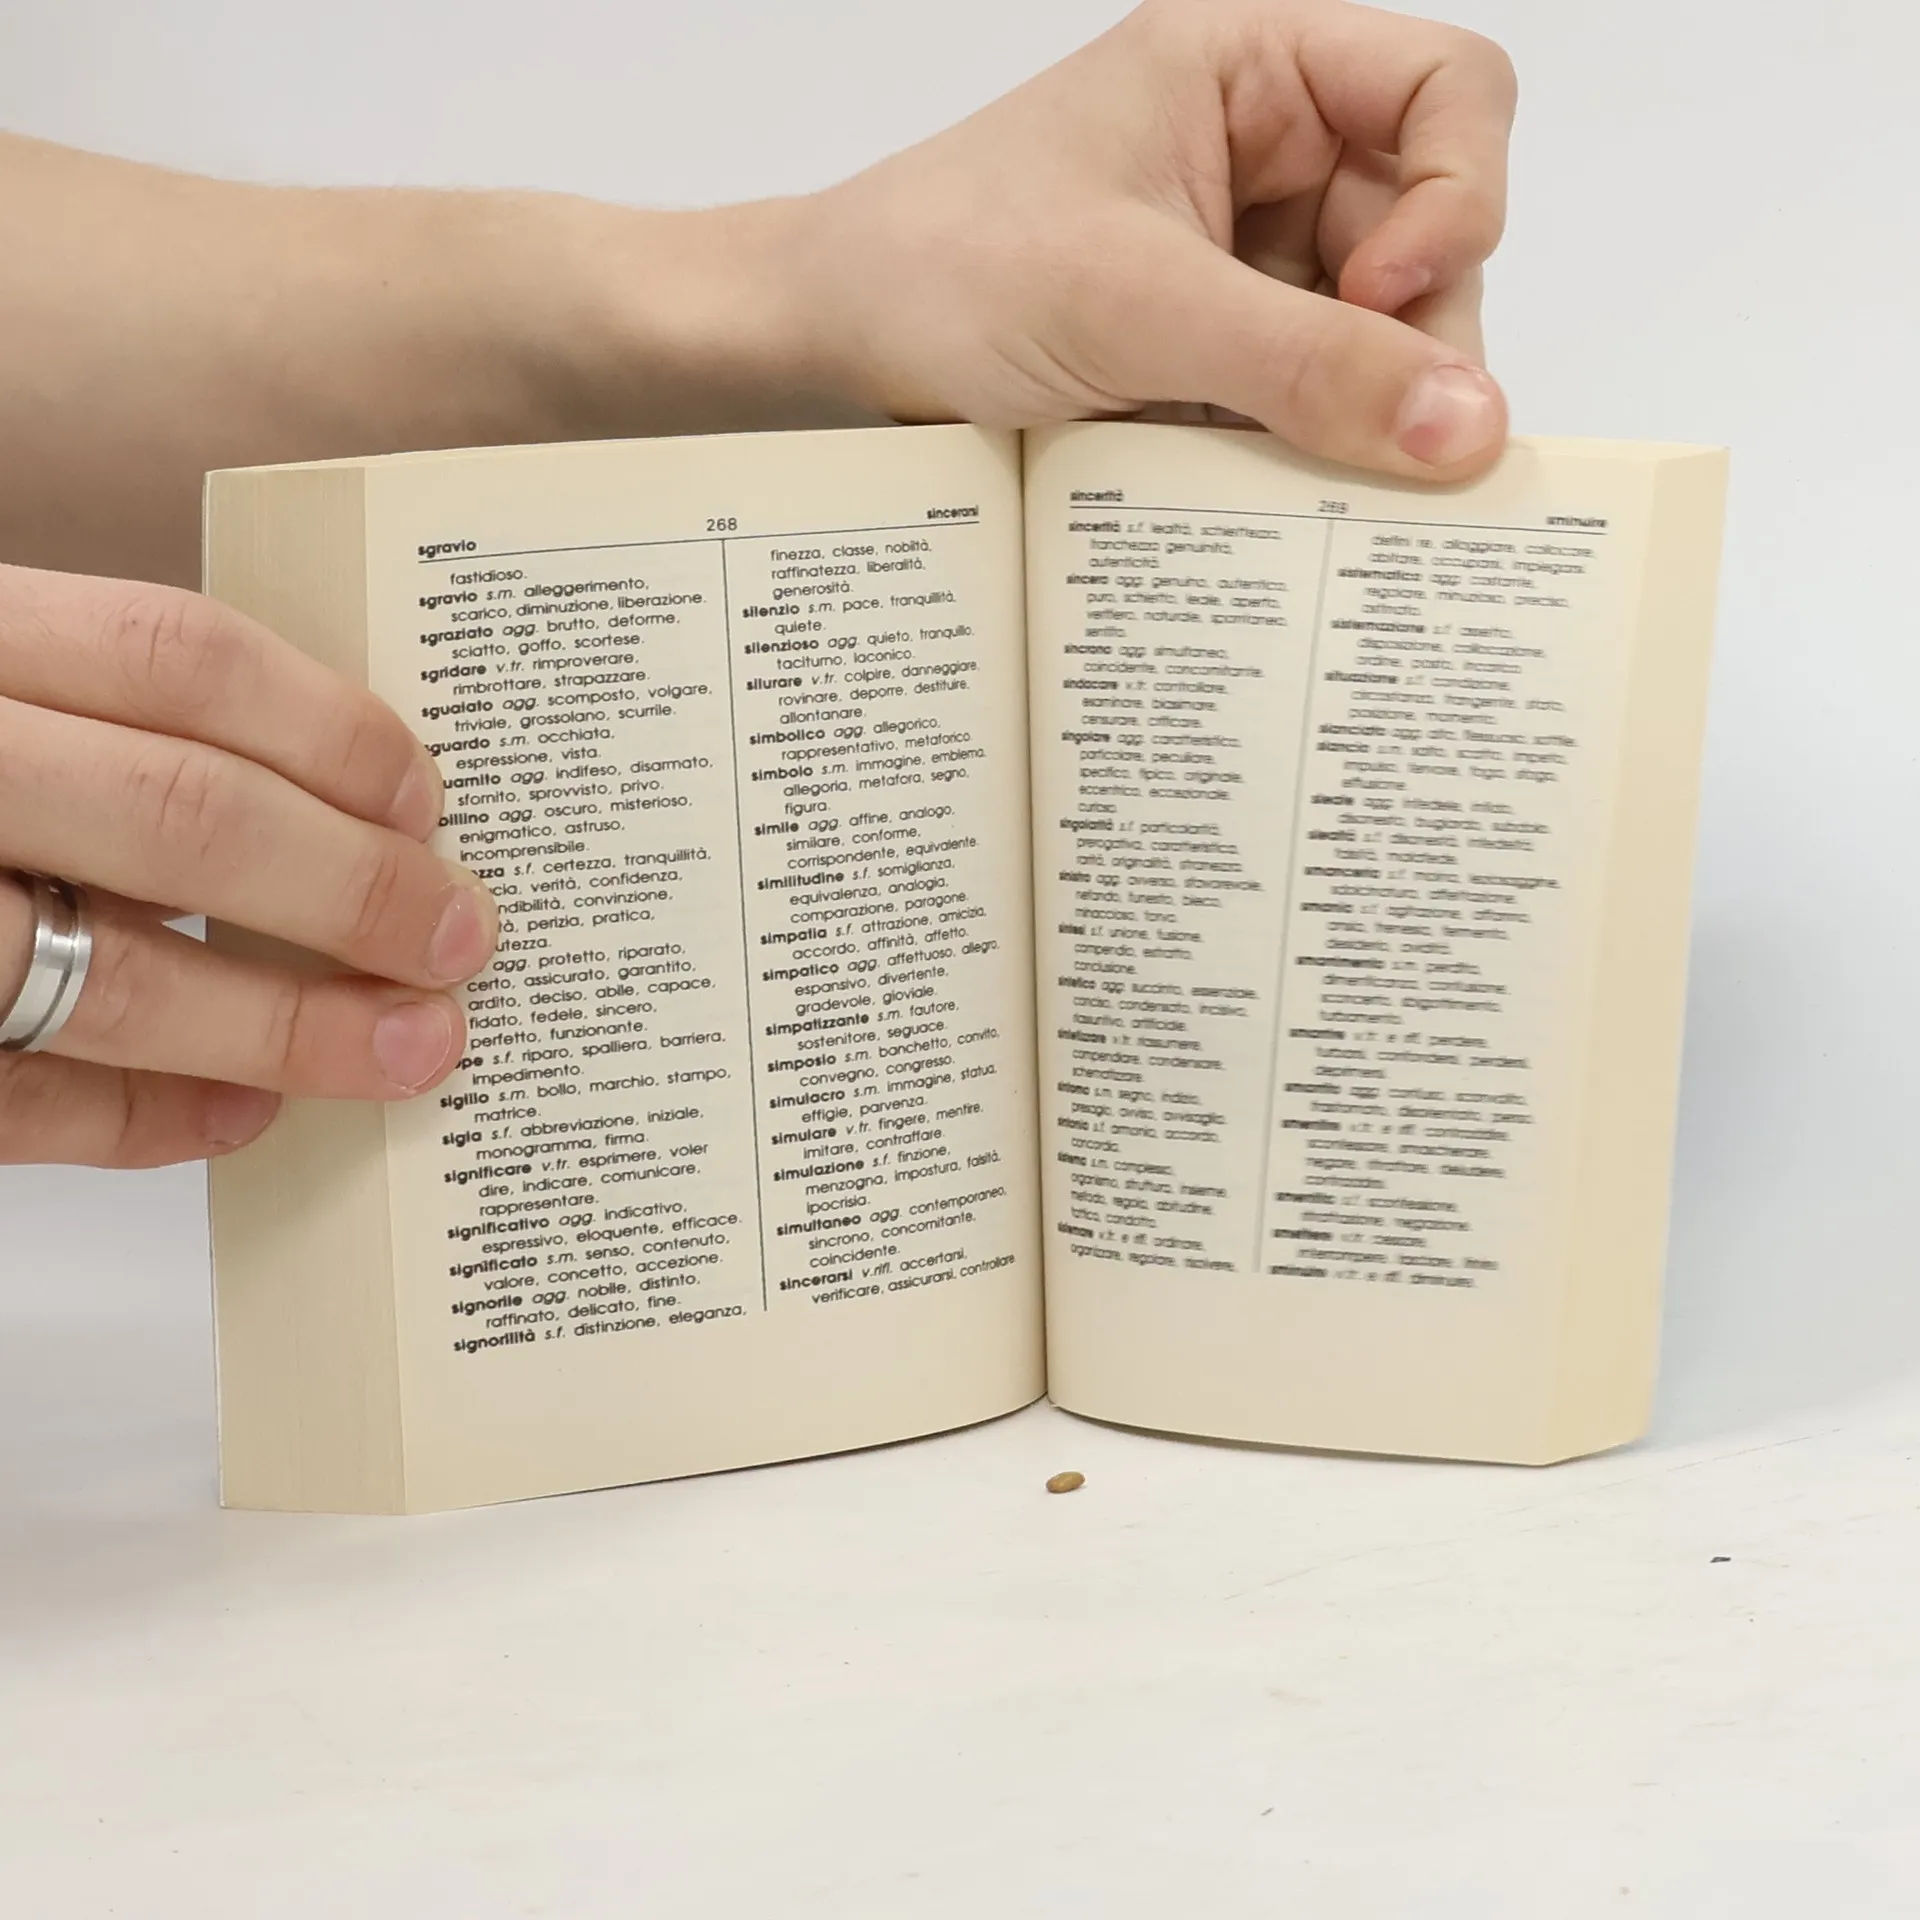 sgravio 268 sincerarsi
fastidioso.
sgravio s.m. alleggerimento,
scarico, diminuzione, liberazione.
sgraziato agg. brutto, deforme,
sciatto, goffo, scortese.
sgridare v.tr. rimproverare,
rimbrottare, strapazzare.
sguaiato agg. scomposto, volgare,
triviale, grossolano, scurrile.
guardo s.m. occhiata,
espressione, vista.
uarnito agg. indifeso, disarmato,
sfornito, sprovvisto, privo.
billino agg. oscuro, misterioso,
enigmatico, astruso,
incomprensibile.
zza s.f. certezza, tranquillità,
cia, verità, confidenza,
ndibilità, convinzione,
tà, perizia, pratica,
utezza.
agg. protetto, riparato,
certo, assicurato, garantito,
ardito, deciso, abile, capace,
fidato, fedele, sincero,
perfetto, funzionante.
pe s.f. riparo, spalliera, barriera,
impedimento.
sigillo s.m. bollo, marchio, stampo,
matrice.
sigla s.f. abbreviazione, iniziale,
monogramma, firma.
significare v.tr. esprimere, voler
dire, indicare, comunicare,
rappresentare.
significativo agg. indicativo,
espressivo, eloquente, efficace.
significato s.m. senso, contenuto,
valore, concetto, accezione.
signorile agg. nobile, distinto,
raffinato, delicato, fine.
signorilità s.f. distinzione, eleganza,
finezza, classe, nobiltà,
raffinatezza, liberalità,
generosità.
silenzio s.m. pace, tranquillità,
quiete.
silenzioso agg. quieto, tranquillo,
taciturno, laconico.
silurare v.tr. colpire, danneggiare,
rovinare, deporre, destituire,
allontanare.
simbolico agg. allegorico,
rappresentativo, metaforico.
simbolo s.m. immagine, emblema,
allegoria, metafora, segno,
figura.
simile agg. affine, analogo,
similare, conforme,
corrispondente, equivalente.
similitudine s.f. somiglianza,
equivalenza, analogia,
comparazione, paragone.
simpatia s.f. attrazione, amicizia,
accordo, affinità, affetto.
simpatico agg. affettuoso, allegro,
espansivo, divertente,
gradevole, gioviale.
simpatizzante s.m. fautore,
sostenitore, seguace.
simposio s.m. banchetto, convito,
convegno, congresso.
simulacro s.m. immagine, statua,
effigie, parvenza.
simulare v.tr. fingere, mentire,
imitare, contraffare.
simulazione s.f. finzione,
menzogna, impostura, falsità,
ipocrisia.
simultaneo agg. contemporaneo,
sincrono, concomitante,
coincidente.
sincerarsi v.rifl. accertarsi,
verificare, assicurarsi, controllare
sincerità 269 sminuire
sincerità s.f. lealtà, schiettezza,
franchezza genuinità,
autenticità.
sincero agg. genuino, autentico,
puro, schietto, leale, aperto,
veritiero, naturale, spontaneo,
sentito.
sincrono agg. simultaneo,
coincidente, concomitante.
sindacare v.tr. controllare,
esaminare, biasimare,
censurare, criticare.
singolare agg. caratteristico,
particolare, peculiare,
specifico, tipico, originale,
eccentrico, eccezionale,
curioso.
singolarità s.f. particolarità,
prerogativa, caratteristica,
rarità, originalità, stranezza.
sinistro agg. avverso, sfavorevole,
nefando, funesto, bieco,
minaccioso, torvo.
sintesi s.f. unione, fusione,
compendio, estratto,
conclusione.
sintetico agg. succinto, essenziale,
conciso, condensato, incisivo,
riassuntivo, artificiale.
sintetizzare v.tr. riassumere,
compendiare, condensare,
schematizzare.
sintomo s.m. segno, indizio,
presagio, avviso, avvisaglia.
sintonia s.f. armonia, accordo,
concordia.
sistema s.m. complesso,
organismo, struttura, insieme,
metodo, regola, abitudine,
tattica, condotta.
sistemare v.tr. e rifl. ordinare,
organizzare, regolare, risolvere,
defini re, alloggiare, collocare,
abitare, occuparsi, impiegarsi.
sistematico agg. costante,
regolare, minuzioso, preciso,
ostinato.
sistemazione s.f. assetto,
disposizione, collocazione,
ordine, posto, incarico.
situazione s.f. condizione,
circostanza, frangente, stato,
posizione, momento.
slanciato agg. alto, flessuoso, sottile.
slancio s.m. salto, scatto, impeto,
impulso, fervore, foga, sfogo,
effusione.
sleale agg. infedele, infido,
disonesto, bugiardo, subdolo.
slealtà s.f. disonestà, infedeltà,
falsità, malafede.
smanceria s.f. moina, leziosaggine,
sdolcinatura, affettazione.
smania s.f. agitazione, affanno,
ansia, frenesia, fermento,
desiderio, avidità.
smarrimento s.m. perdita,
dimenticanza, confusione,
sconcerto, sbigottimento,
turbamento.
smarrire v.tr. e rifl. perdere,
turbarsi, confondersi, perdersi,
deprimersi.
smarrito agg. confuso, sconvolto,
frastornato, disorientato, perso.
smentire v.tr. e rifl. contraddire,
sconfessare, smascherare,
negare, ritrattare, deludere,
contraddirsi.
smentita s.f. sconfessione,
ritrattazione, negazione.
smettere v.tr. cessare,
interrompere, lasciare, finire.
sminuire v.tr. e rifl. diminuire,